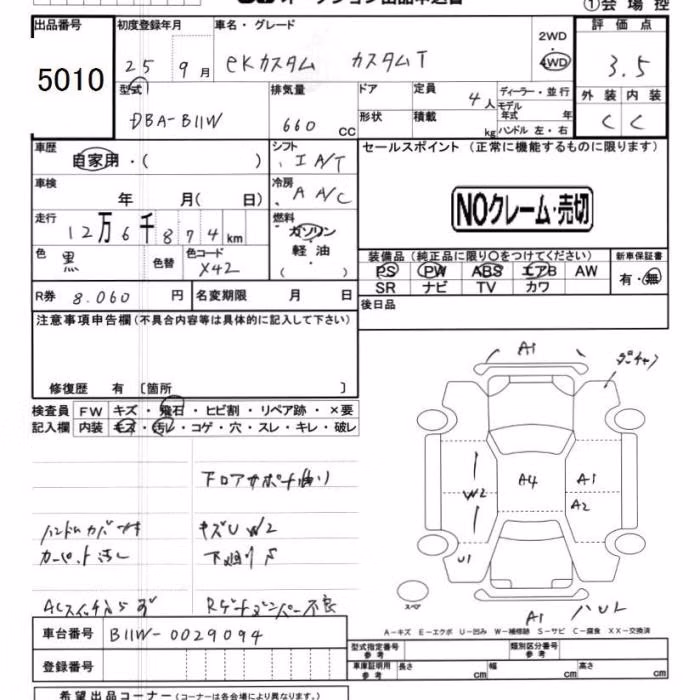 ①会場控
出品番号
5010
初度登録年月
25 9月
車名・グレード
eKカスタム カスタムT
2WD
4WD
評価点
3.5
外装 内装
C C
型式
DBA-B11W
排気量
660 CC
ドア
形状
定員
4人
積載
kg
ディーラー・並行
モデル年式 年
ハンドル 左・右
車歴
自家用・( )
シフト
IA/T
セールスポイント (正常に機能するものに限ります)
NOクレーム・売切
車検
年 月( 日)
冷房
AA/C
走行
12万6千874km
燃料
ガソリン
軽油
( )
色
黒
色替
色コード
X42
装備品(純正品に限り○をつけてください)
PS PW ABS エアB AW
SR ナビ TV カワ
新車保証書
有・無
R券 8.060円
名変期限 月 日
後日品
注意事項申告欄(不具合内容等は具体的に記入して下さい)
修復歴 有 〔箇所 〕
検査員
記入欄
FW キズ・飛石・ヒビ割・リペア跡・×要
内装 キズ・汚レ・コゲ・穴・スレ・キレ・破レ
下ロアサポート曲り
キズU W2
カーペット汚し
下廻りS
A1
W2
A4
A1
A2
U1
スペア
A1
A-キズ E-エクボ U-凹み W-補修跡 S-サビ C-腐食 XX-交換済
車台番号
B11W-0029094
登録番号
型式指定番号
参考
類別区分番号
参考
車庫証明用
参考
長さ cm
幅 cm
高さ cm
希望出品コーナー(コーナーは各会場により異なります。)